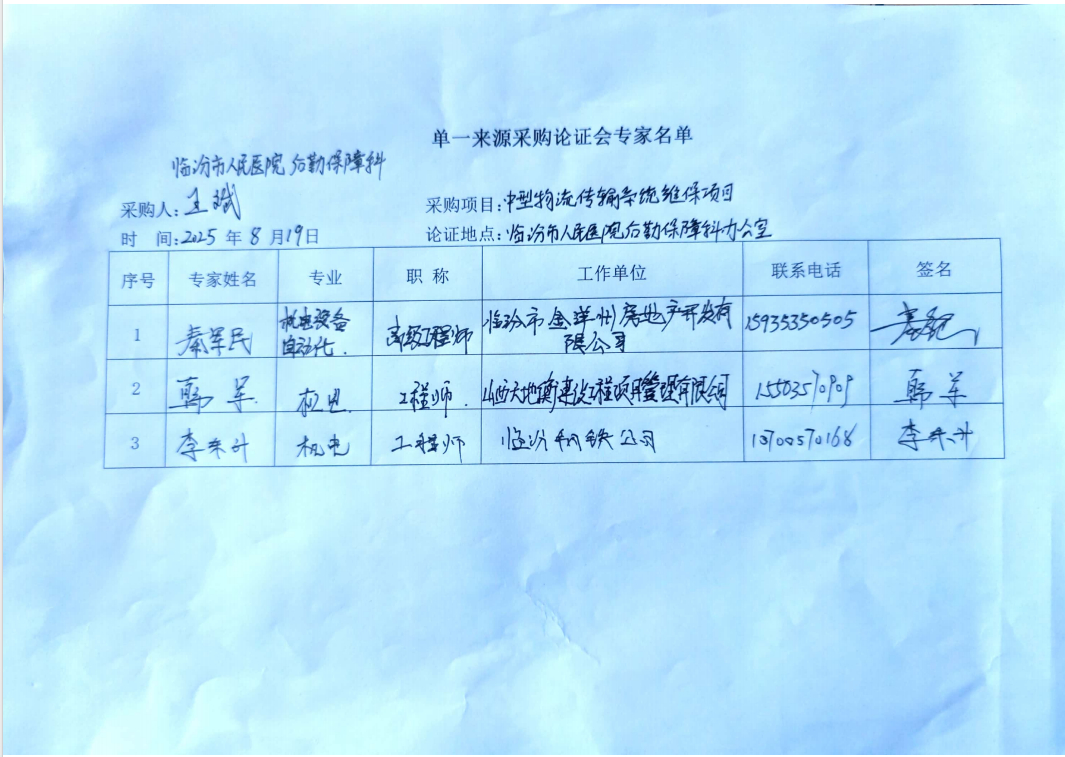 单一来源采购论证会专家名单
临汾市人民医院后勤保障科
采购人:王斌 采购项目:中型物流传输系统维保项目
时 间:2025 年 8 月19日 论证地点:临汾市人民医院后勤保障科办公室
序号 专家姓名 专业 职 称 工作单位 联系电话 签名
1 秦军民 机电设备自动化. 高级工程师 临汾市金洋州房地产开发有限公司 15935350505
2 韩军. 机电 工程师. 山西天地衡建设工程项目管理有限公司 15503570909 韩军
3 李来升 机电 工程师 临汾钢铁公司 13700570168 李来升